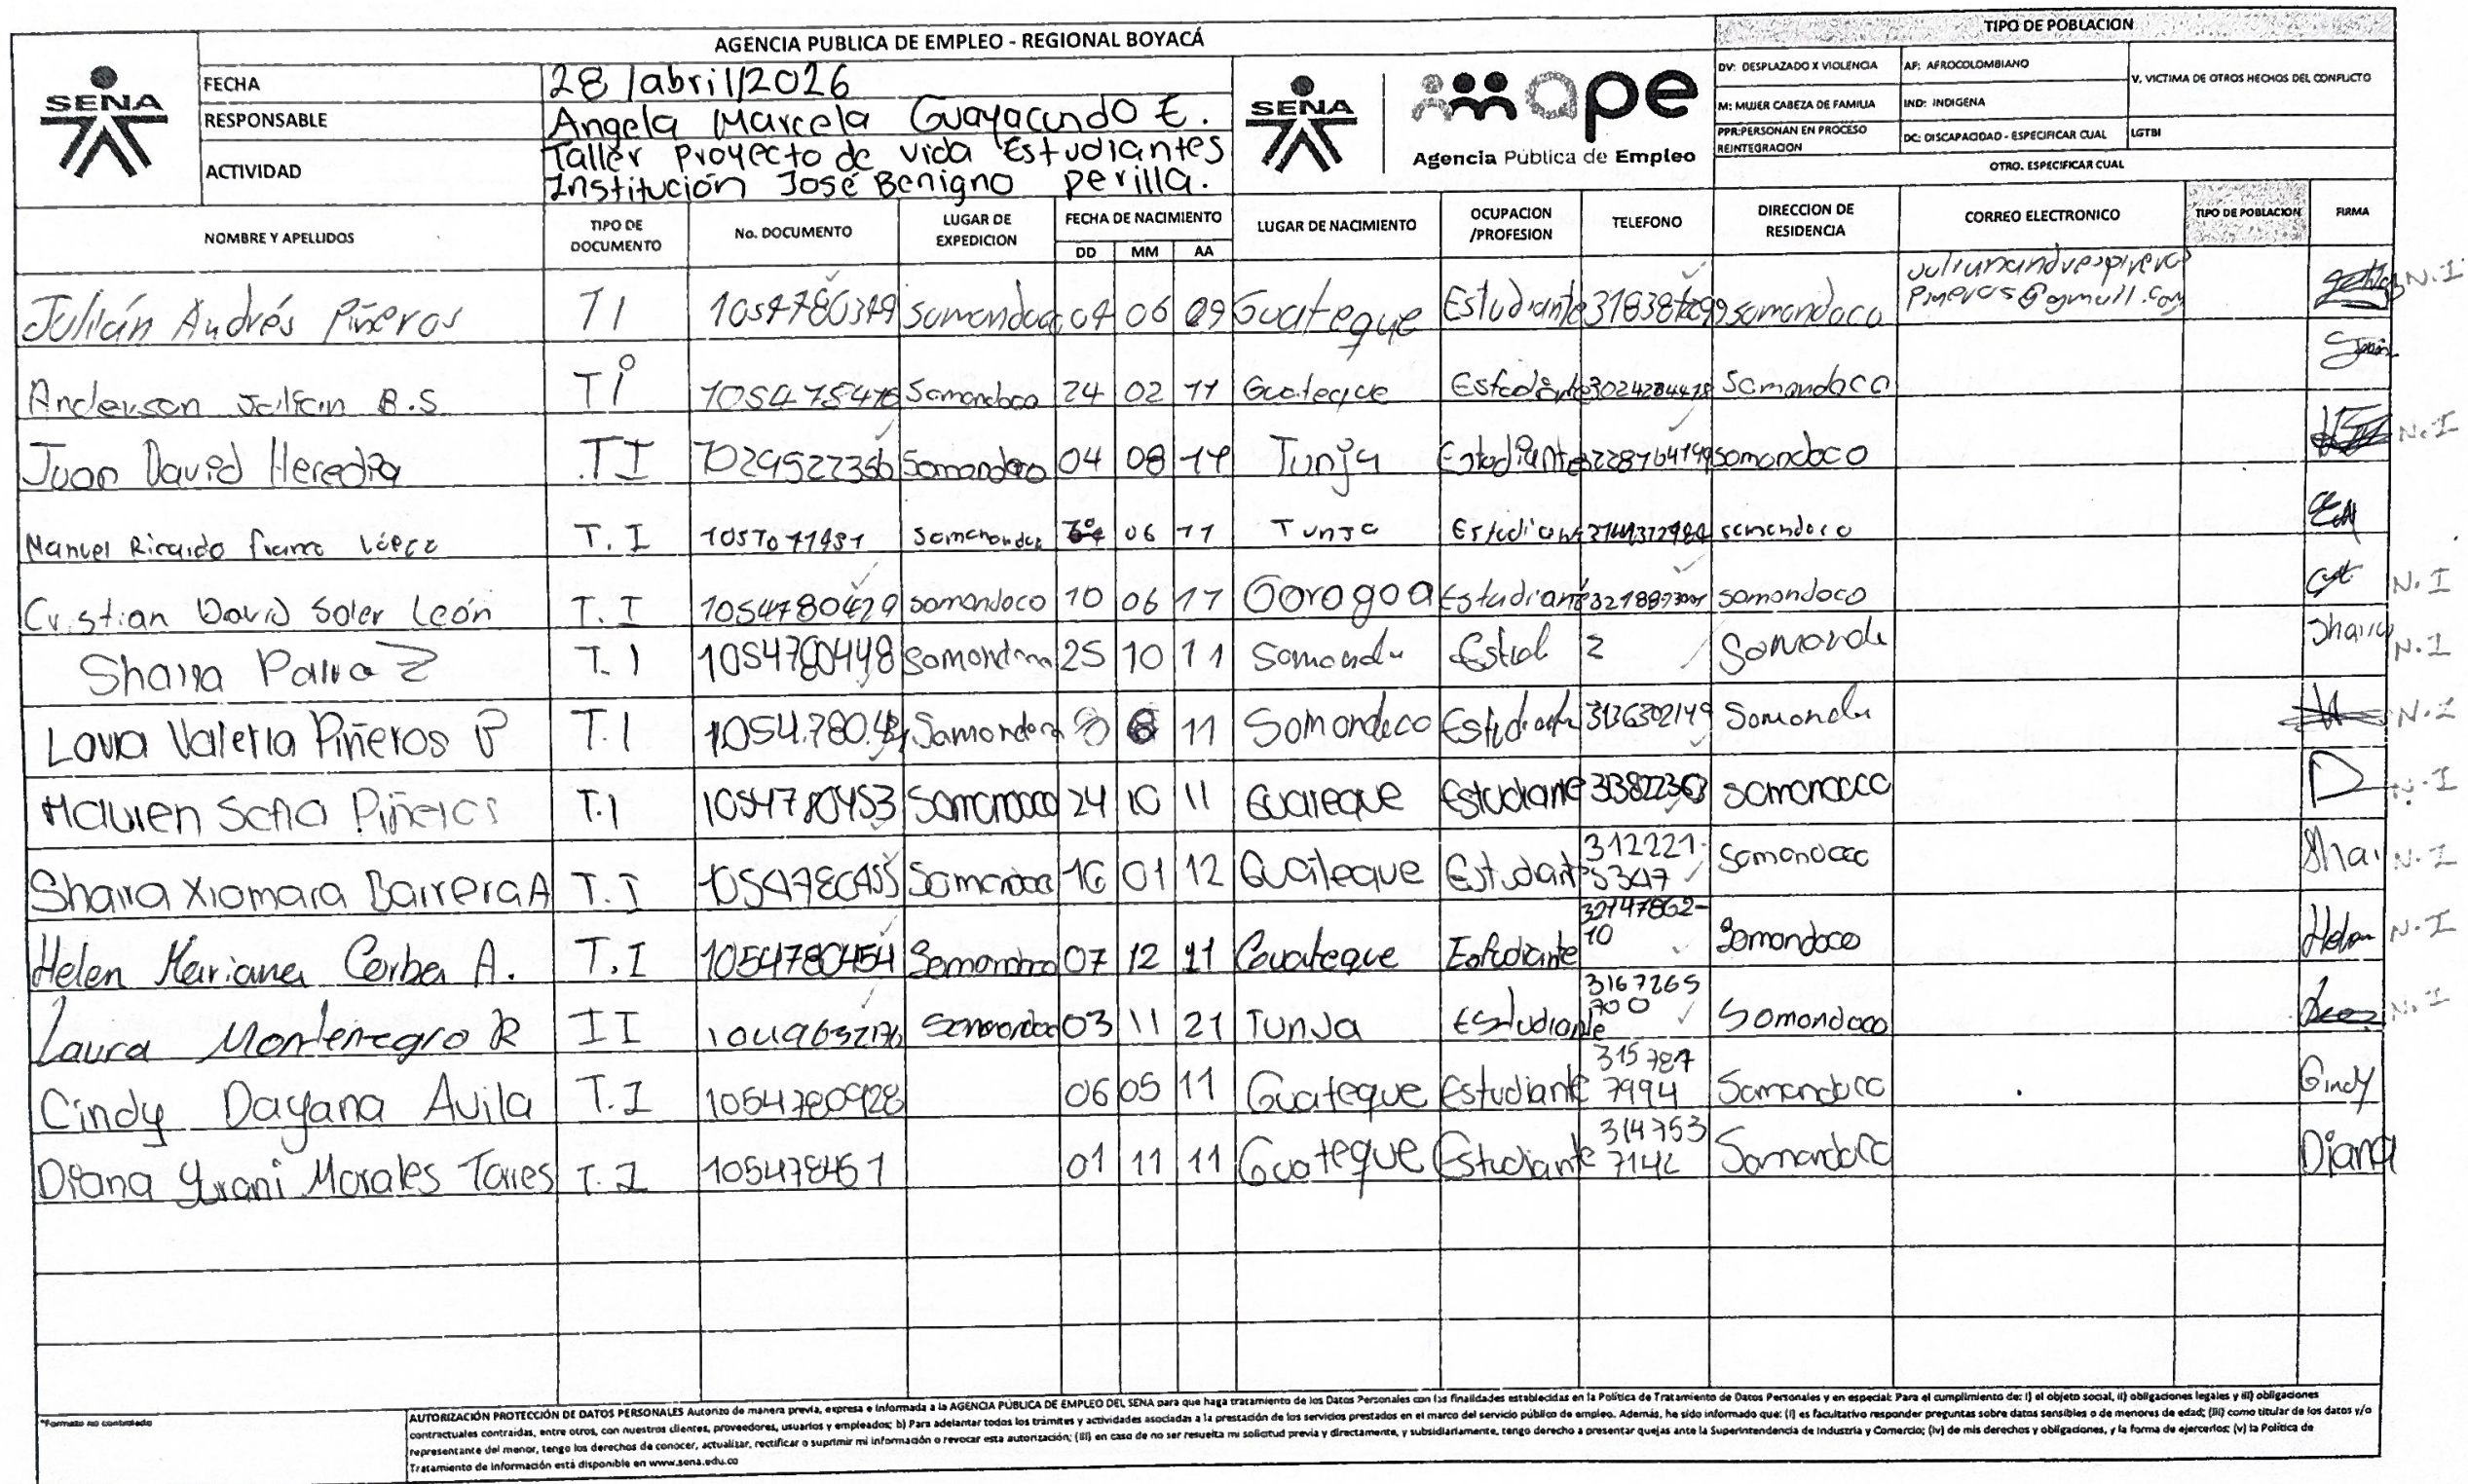 AGENCIA PUBLICA DE EMPLEO - REGIONAL BOYACÁ
TIPO DE POBLACION
SENA
FECHA 28/abril/2026
RESPONSABLE Angela Marcela Guayacundo E.
ACTIVIDAD Taller Proyecto de vida Estudiantes
Institución José Benigno Perilla.
SENA
ape
Agencia Pública de Empleo
DV: DESPLAZADO X VIOLENCIA AF: AFROCOLOMBIANO V. VICTIMA DE OTROS HECHOS DEL CONFLICTO
M: MUJER CABEZA DE FAMILIA IND: INDIGENA
PPR:PERSONAN EN PROCESO REINTEGRACION DC: DISCAPACIDAD - ESPECIFICAR CUAL LGTBI
OTRO. ESPECIFICAR CUAL
NOMBRE Y APELLIDOS TIPO DE DOCUMENTO No. DOCUMENTO LUGAR DE EXPEDICION FECHA DE NACIMIENTO LUGAR DE NACIMIENTO OCUPACION /PROFESION TELEFONO DIRECCION DE RESIDENCIA CORREO ELECTRONICO TIPO DE POBLACION FIRMA
DD MM AA
Julián Andrés Piñeros TI 06 09 Guateque Estudiante somondoco N.I
Anderson B.S TI Somondoco 24 02 11 Guateque Somondoco
Juan David Heredia TI Somondoco 04 08 Tunja somondoco N.I
Manuel Ricardo López T.I 06 11 Tunja somondoco
Cristian David Soler León T.I 1054780429 somondoco 10 06 11 Estudiante somondoco N.I
T.I 1054780448 25 10 11 N.I
Valeria Piñeros P T.I 11 Somondoco 3136302149 N.I
Sofia Piñeros T.I 1054780453 24 10 11 Guateque Estudiante N.I
Xiomara Barrera A T.I 1054780455 16 01 12 Guateque 312221-5347 Somondoco N.I
Helen Mariana A. T.I 1054780454 Somondoco 07 12 11 Guateque Estudiante 32147862-10 Somondoco Helen N.I
Laura Montenegro R 03 11 21 Tunja Estudiante 3167265700 Somondoco N.I
Cindy Dayana Avila T.I 1054780428 06 05 11 Guateque Estudiante 315787 7994 Somondoco Cindy
Diana Yurani Morales Torres T.I 01 11 11 Guateque Estudiante 314753 7142 Somondoco Diana
*Formato no controlado
AUTORIZACIÓN PROTECCIÓN DE DATOS PERSONALES Autorizo de manera previa, expresa e informada a la AGENCIA PÚBLICA DE EMPLEO DEL SENA para que haga tratamiento de los Datos Personales con las finalidades establecidas en la Política de Tratamiento de Datos Personales y en especial: Para el cumplimiento de: i) el objeto social, ii) obligaciones legales y iii) obligaciones
contractuales contraídas, entre otros, con nuestros clientes, proveedores, usuarios y empleados; b) Para adelantar todos los trámites y actividades asociadas a la prestación de los servicios prestados en el marco del servicio público de empleo. Además, he sido informado que: (i) es facultativo responder preguntas sobre datos sensibles o de menores de edad; (iii) como titular de los datos y/o
representante del menor, tengo los derechos de conocer, actualizar, rectificar o suprimir mi información o revocar esta autorización; (iii) en caso de no ser resuelta mi solicitud previa y directamente, y subsidiariamente, tengo derecho a presentar quejas ante la Superintendencia de Industria y Comercio; (iv) de mis derechos y obligaciones, y la forma de ejercerlos; (v) la Política de
Tratamiento de información está disponible en www.sena.edu.co